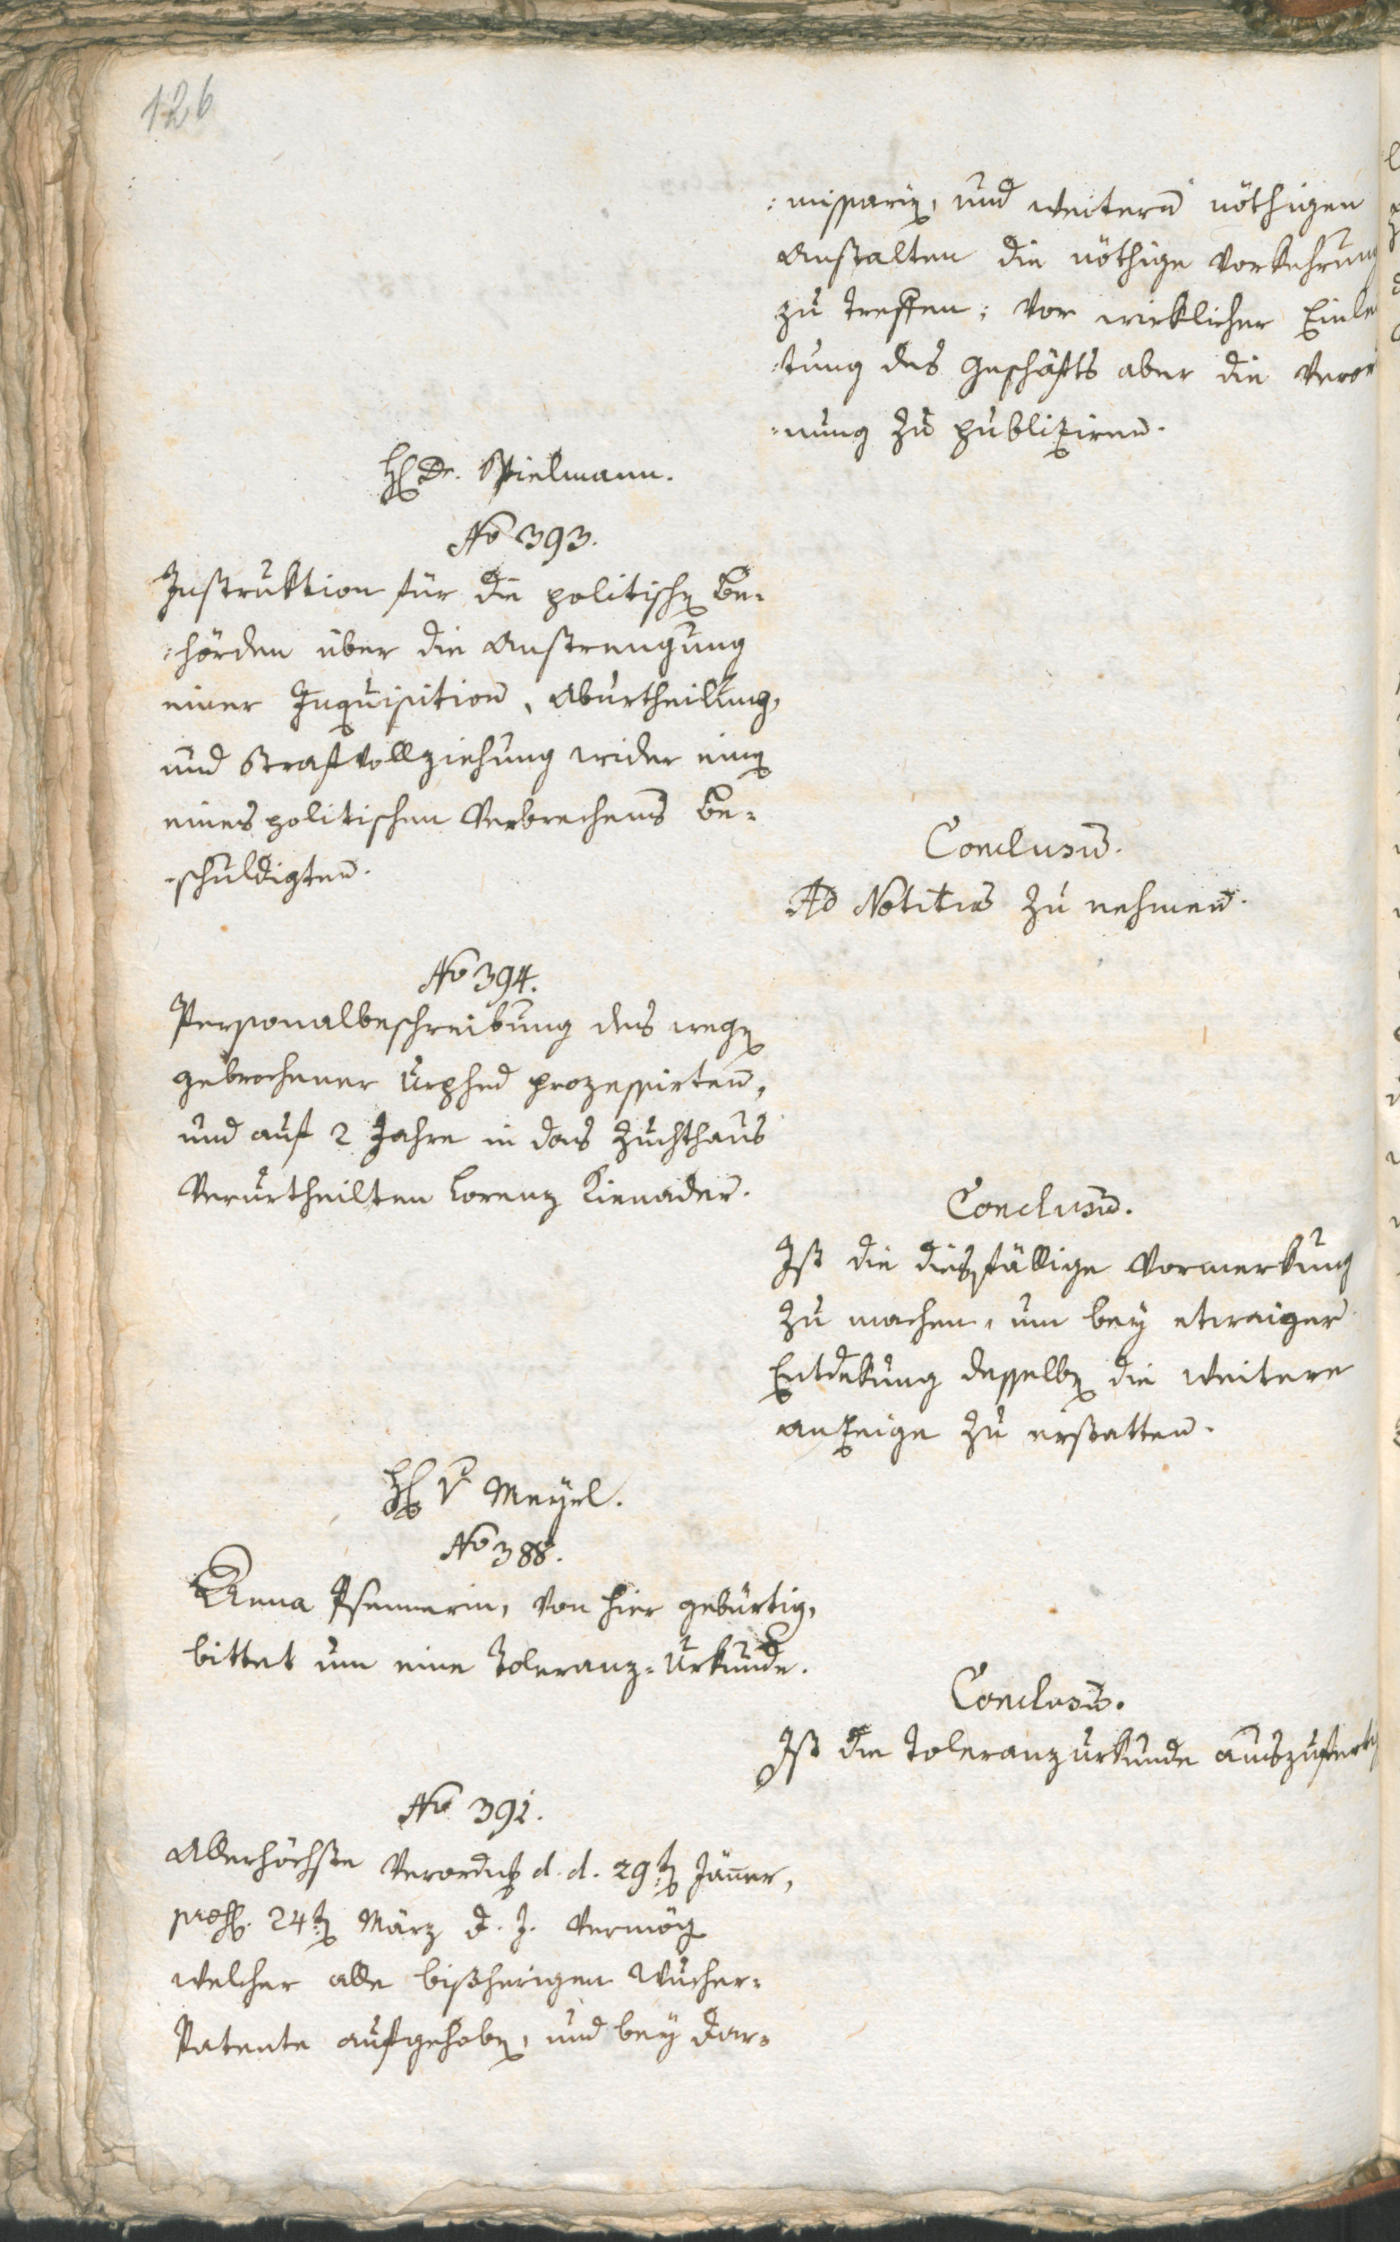 126
:missarien, und weitern nöthigen
Anstalten die nöthige Vorkehrung
zu treffen; vor wirklicher Einlei
:tung des Geschäfts aber die Veror
:nung zu publiziren.
H Dr. Spielmann.
No 393.
Instruktion für die politischen Be-
:hörden über die Anstrengung
einer Inquisition, Aburtheilung,
und Strafvollziehung wider einen
eines politischen Verbrechens be-
-schuldigten.
Conclusum.
Ad Notitias zu nehmen.
No 394.
Personalbeschreibung des wegen
gebrochener Urphed prozessirten,
und auf 2 Jahre in das Zuchthaus
verurtheilten Lorenz Kienader.
Conclusum.
Ist die diesfällige Vormerkung
zu machen, um bey etwaiger
Entdekung desselben die weitere
Anzeige zu erstatten.
H v Mayrl.
No 388.
Anna Psennerin, von hier gebürtig,
bittet um eine Toleranz-Urkunde.
Conclusum.
Ist die Toleranzurkunde auszufertig
No 391.
Allerhöchste Verordnung d. d. 29ten Jäner,
praes. 24ten März d. J. vermög
welcher alle bißherigen Wucher-
Patente aufgehoben, und bey Dar-